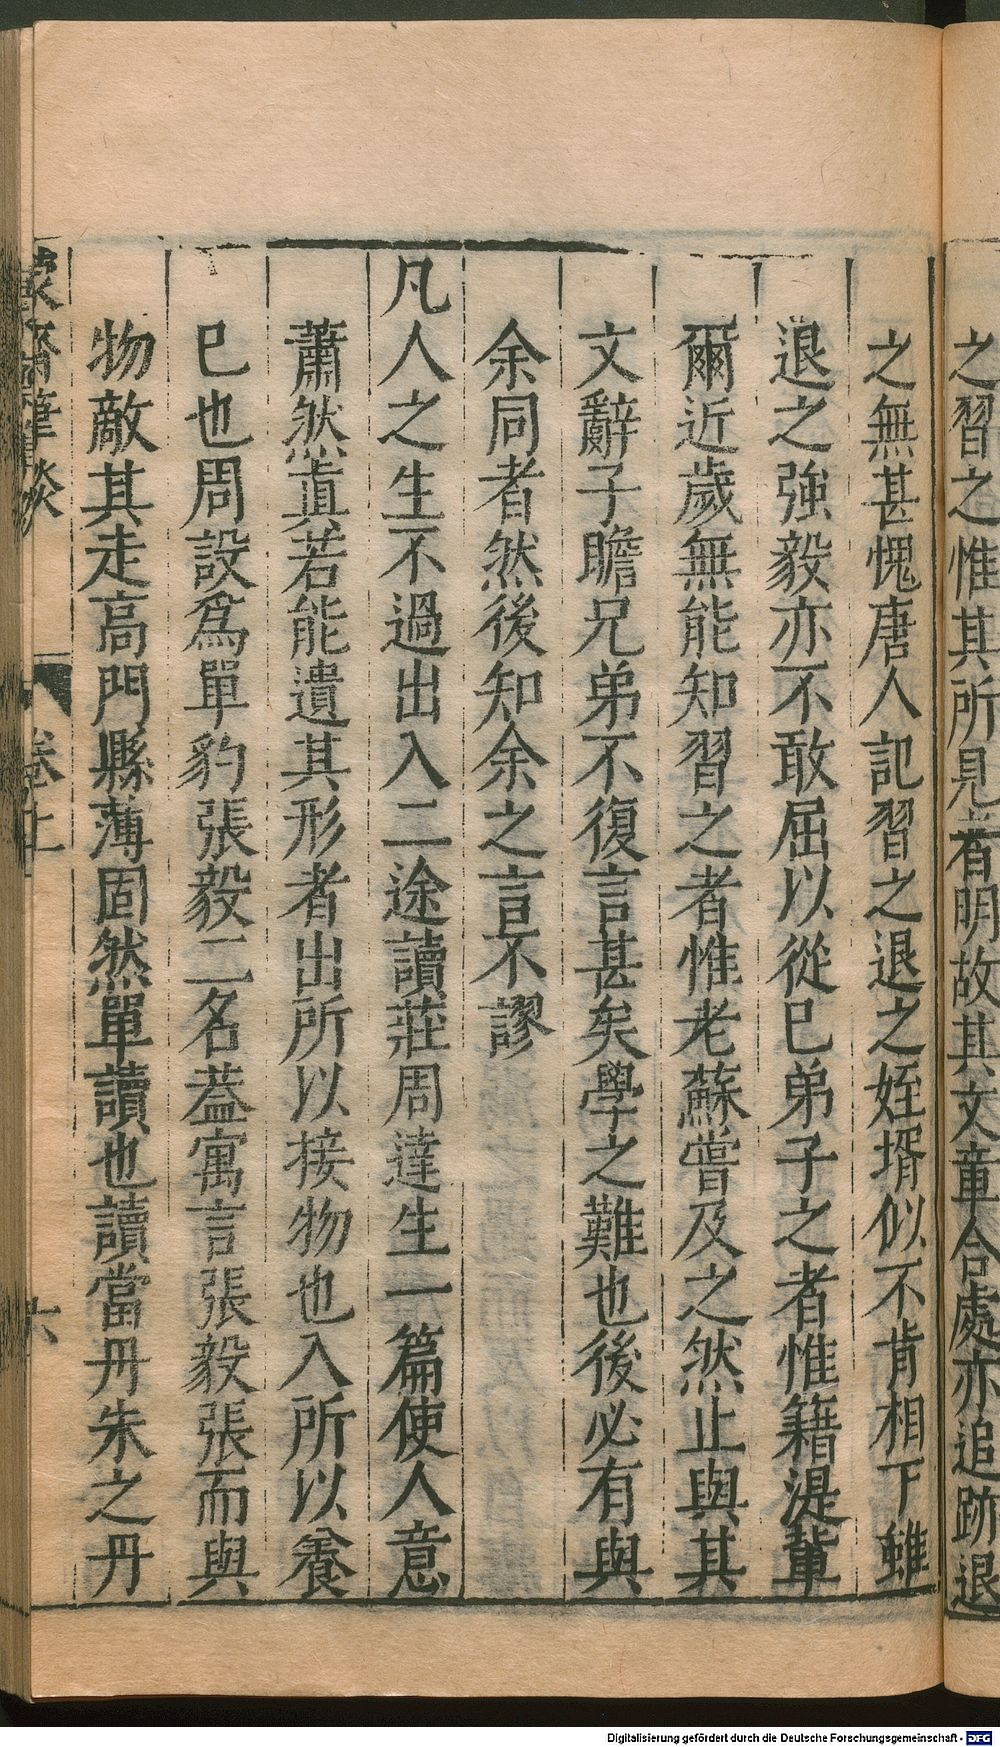 之習之惟其所見者有明故其文章合處亦追跡退
之無甚愧唐人記習之退之姪壻似不肯相下雖
退之強毅亦不敢屈以從已弟子之者惟籍湜輩
爾近歲無能知習之者惟老蘇嘗及之然止與其
文辭子瞻兄弟不復言甚矣學之難也後必有與
余同者然後知余之言不謬
凡人之生不過出入二途讀莊周達生一篇使人意
蕭然真若能遺其形者出所以接物也入所以養
已也周設爲單豹張毅二名葢寓言張毅張而與
物敵其走高門縣薄固然單讀也讀當丹朱之丹
蒙齋筆談 卷上 六
Digitalisierung gefördert durch die Deutsche Forschungsgemeinschaft - DFG